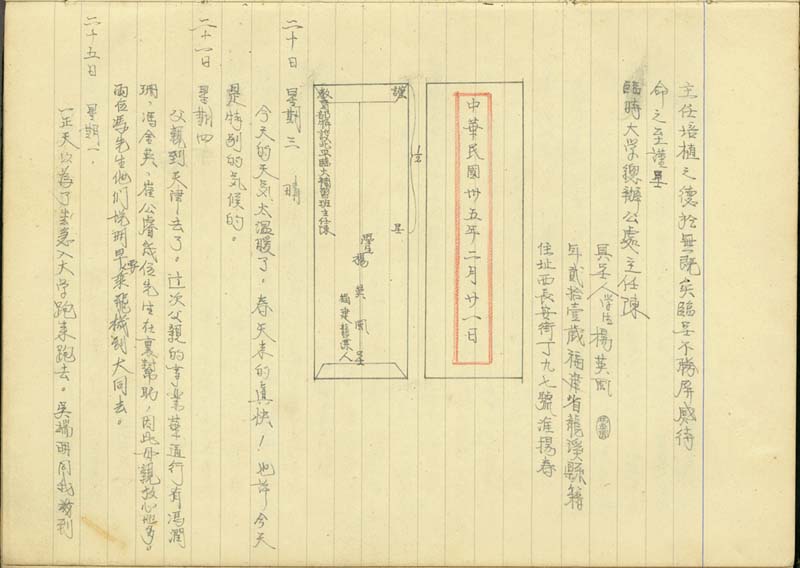 主任培植之德於無既矣臨呈不勝屏感待
命之至謹呈
臨時大学總辦公處主任陳
具呈人學生楊英風
年貳拾壹歲福建省龍溪縣籍
住址西長安街丁九七號淮揚春
中華民國卅五年二月廿一日
謹呈
½
學生楊英風呈
福建龍溪人
教育部特設北平臨大補習班主任陳
二十日 星期三 晴
今天的天気太温暖了。春天来的真快！也許今天
是特別的気候的。
二十一日 星期四
父親到天津去了。这次父親的事業葉道行有馮潤
珊、馮金英、崔公睿幾位先生在裏幫助，因此母親放心多。
兩位馮先生他们説明早要乘飛機到大同去。
二十五日 星期一
一正天以為了生意入大学跑来跑去。吳瑞明同我旁到